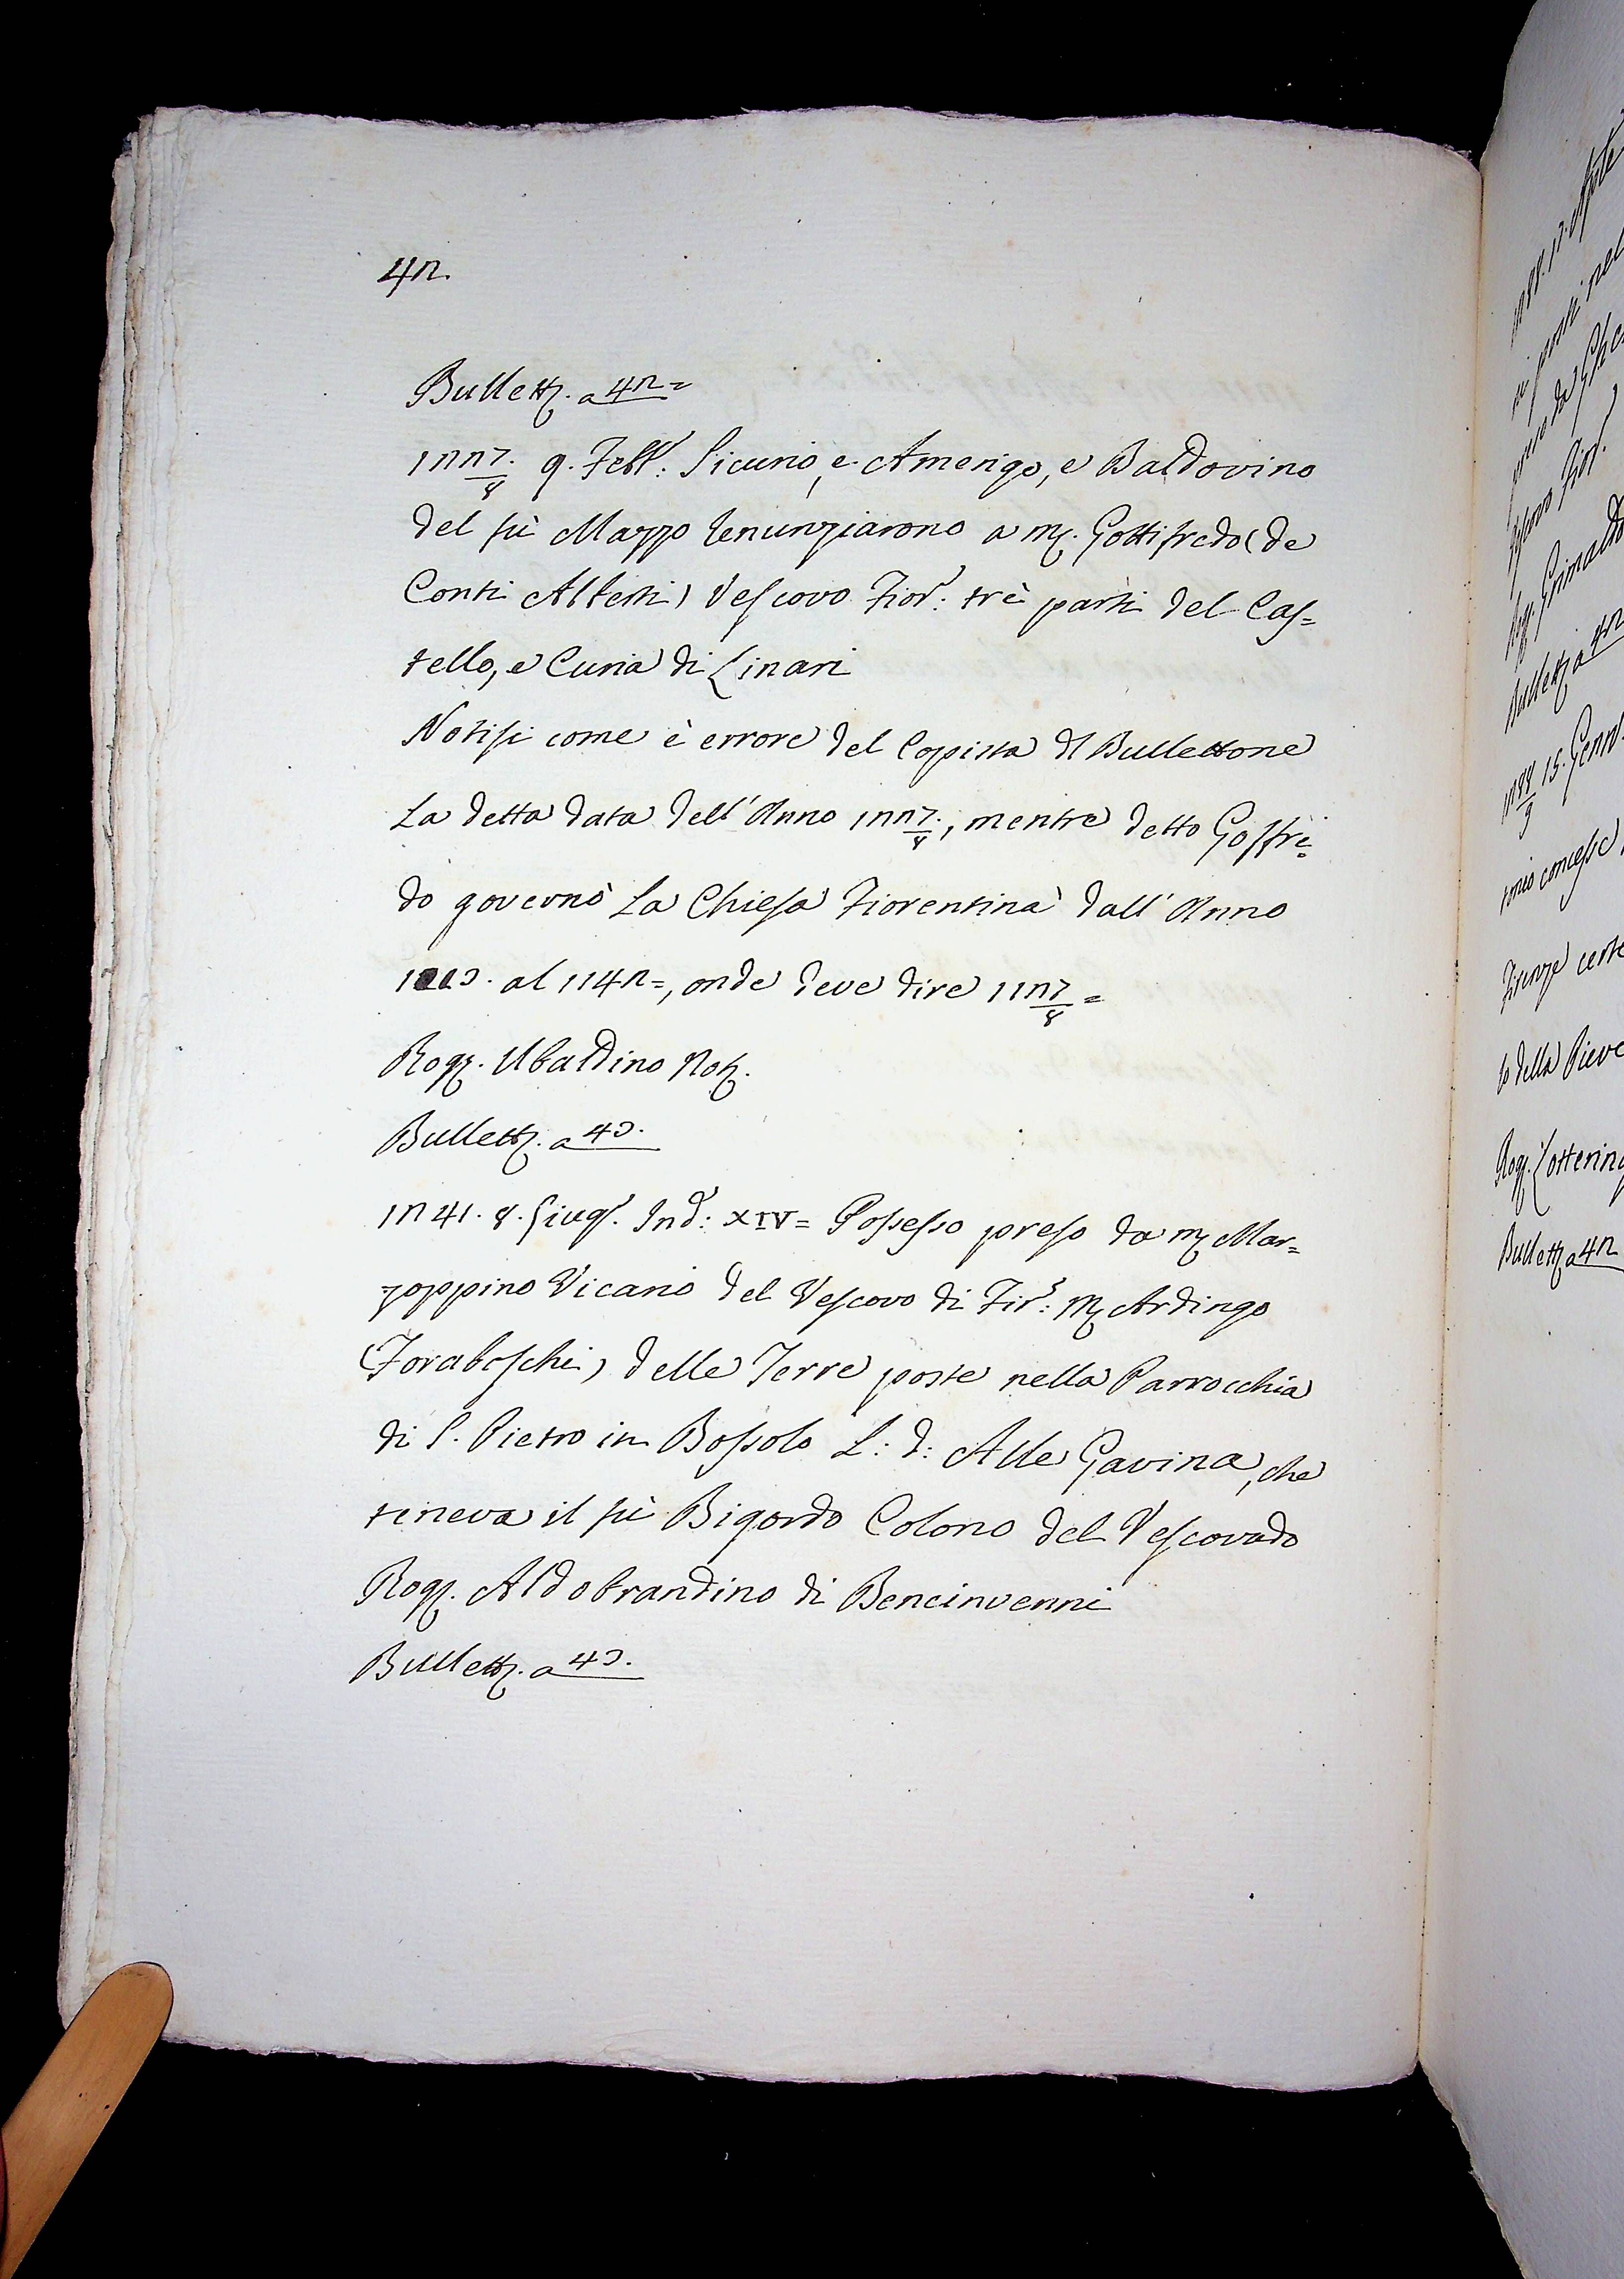 42.
Bullett. a 42=
1227/8 9. Febb: Sicurio, e Amerigo, e Baldovino
del fù Mazzo renunziarono a M. Gottifredo (de
Conti Alberti) Vescovo Fior: trè parti del Cas=
tello, e Curia di Linari
Notisi come è errore del Copista dl Bullettone
La detta data dell'Anno 1227/8, mentre detto Goffre=
do governò La Chiesa Fiorentina dall'Anno
1113. al 1142=, onde deve dire 1127/8=
Rog. Ubaldino Not.
Bullett. a 43.
1241. 8. Giug. Ind: XIV= Possesso preso da M Mar=
zoppino Vicario del Vescovo di Fir: M Ardingo
(Foraboschi) delle Terre poste nella Parrocchia
di S. Pietro in Bossolo L: d: Alle Gavina, che
teneva il fù Bigordo Colono del Vescovado
Rog. Aldobrandino di Bencinvenni
Bullett. a 43.
1288. 17.
nel
da
Fior.
Rog. Grimaldo
Bullett. a 42
1288/9 15. Genn.
concesse
Firenze certe
to della Pieve
Rog. Lottering
Bullett. a 42